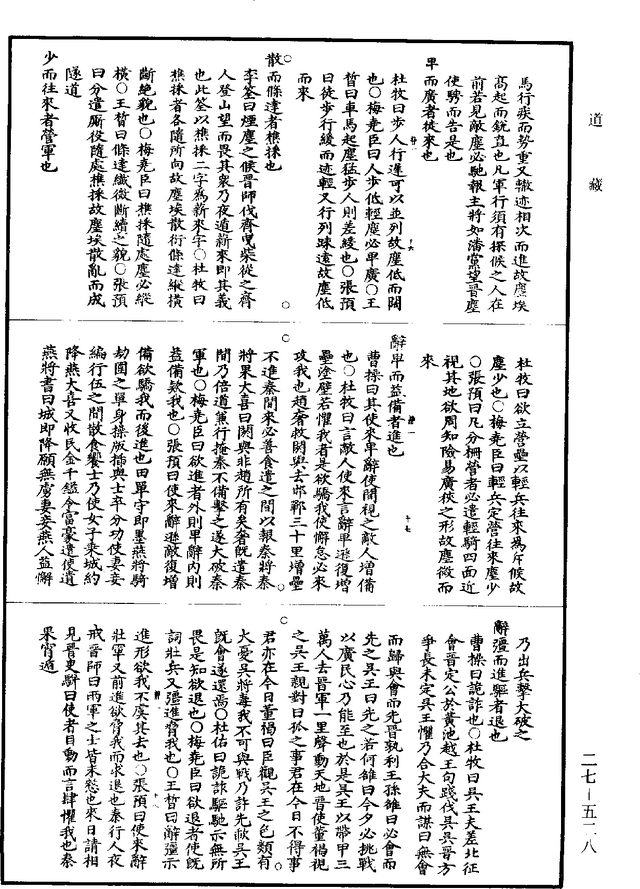 道藏
馬行疾而勢重又轍迹相次而進故塵埃
高起而銳直也凡軍行須有探候之人在
前若見敵塵必馳報主將如潘黨望晉塵
使騁而告是也
卑而廣者徒來也
杜牧曰步人行遲可以並列故塵低而闊
也○梅堯臣曰人步低輕塵必卑廣○王
晳曰車馬起塵猛步人則差緩也○張預
曰徒步行緩而迹輕又行列踈遠故塵低
而來
散而條達者樵採也
李筌曰煙塵之候晉師伐齊曳柴從之齊
人登山望而畏其衆乃夜遁薪來即其義
也此筌以樵採二字為薪來字○杜牧曰
樵採者各隨所向故塵埃散衍條達縱橫
斷絕貌也○梅堯臣曰樵採隨處塵必縱
橫○王晳曰條達纖微斷續之貌○張預
曰分遣厮役隨處樵採故塵埃散亂而成
隧道
少而往來者營軍也
杜牧曰欲立營壘以輕兵往來為斥候故
塵少也○梅堯臣曰輕兵定營往來塵少
○張預曰凡分柵營者必遣輕騎四面近
視其地欲周知險易廣狹之形故塵微而
來
辭卑而益備者進也
曹操曰其使來卑辭使間視之敵人增備
也○杜牧曰言敵人使來言辭卑遜復增
壘塗壁若懼我者是欲驕我使懈怠必來
攻我也趙奢救閼與去邯鄲三十里增壘
不進秦間來必善食遣之間以報秦將秦
將果大喜曰閼與非趙所有矣奢既遣秦
間乃倍道兼行掩秦不備擊之遂大破秦
軍也○梅堯臣曰欲進者外則卑辭內則
益備欵我也○張預曰使來辭遜敵復增
備欲驕我而後進也田單守即墨燕將騎
劫圍之單身操版插與士卒分功使妻妾
編行伍之間散食饗士乃使女子乘城約
降燕大喜又收民金千鎰令富豪遺使遺
燕將書曰城即降願無虜妻妾燕人益懈
乃出兵擊大破之
辭彊而進驅者退也
曹操曰詭詐也○杜牧曰吳王夫差北征
會晉定公於黃池越王句踐伐吳吳晉方
爭長未定吳王懼乃合大夫而謀曰無會
而歸與會而先晉孰利王孫雒曰必會而
先之吳王曰先之若何雒曰今夕必挑戰
以廣民心乃能至也於是吳王以帶甲三
萬人去晉軍一里聲動天地晉使董褐視
之吳王親對曰孤之事君在今日不得事
君亦在今日董褐曰臣觀吳王之色類有
大憂吳將毒我不可與戰乃許先歃吳王
既會遂還焉○杜佑曰詭詐驅馳示無所
畏是知欲退也○梅堯臣曰欲退者使既
詞壯兵又彊進脅我也○王晳曰辭彊示
進形欲我不虞其去也○張預曰使來辭
壯軍又前進欲脅我而求退也秦行人夜
戒晉師曰兩軍之士皆未憖也來日請相
見晉臾駢曰使者目動而言肆懼我也秦
果宵遁
二七－五二八